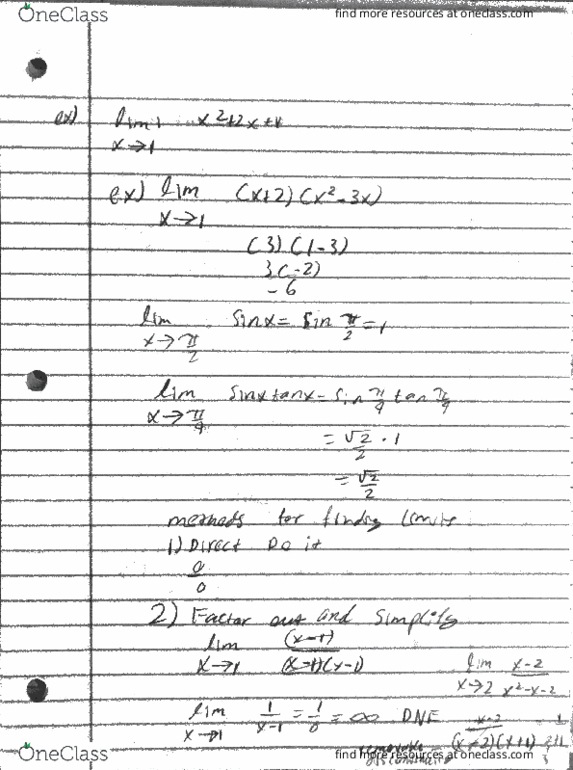 OneClass
find more resources at oneclass.com
ex) lim x²+2x+4
x→1
ex) lim (x+2)(x²-3x)
x→1
(3)(1-3)
3(-2)
-6
lim sinx = sin π/2 = 1
x→π/2
lim sinxtanx = sin π/4 tan π/4
x→π/4
= √2/2 · 1
= √2/2
methods for finding limits
1) Direct Do it
0/0
2) Factor out and Simplify
lim (x-1)/(x-1)(x-1)
x→1
lim x-2/x²-x-2
x→2
lim 1/x-1 = 1/0 = ∞ DNE
x→1
x-2/(x-2)(x+1)
OneClass
find more resources at oneclass.com